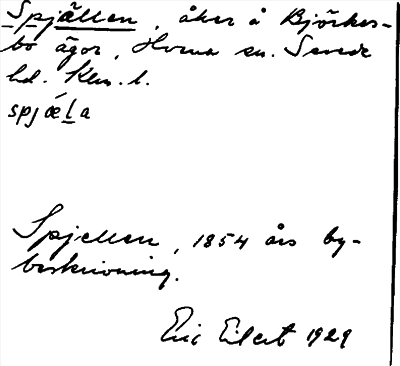 Spjällen, åker å Björkes-
bo ägor, Hvena sn. Sevede
hd. Klm. l.
spjǽla
Spjellen, 1854 års by-
beskrivning.
Eric Eilert 1929